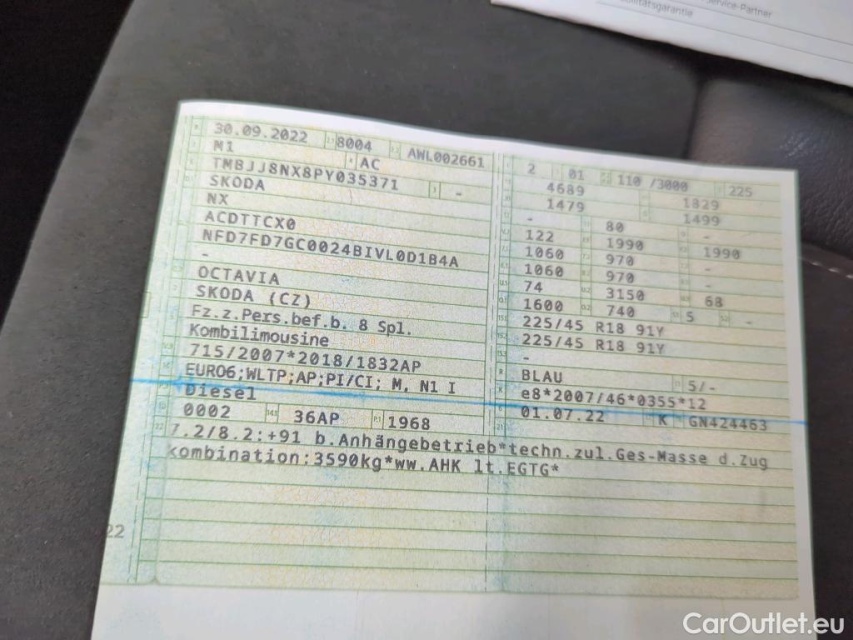 Service-Partner
Mobilitätsgarantie
30.09.2022 8004 AWL002661
M1 AC
TMBJJ8NX8PY035371 -
SKODA
NX
ACDTTCX0
NFD7FD7GC0024BIVL0D1B4A
-
OCTAVIA
SKODA (CZ)
Fz.z.Pers.bef.b. 8 Spl.
Kombilimousine
715/2007*2018/1832AP
EURO6;WLTP;AP;PI/CI; M, N1 I
Diesel
0002 36AP 1968
2 01 110 /3000 225
4689 1829
1479 1499
- 80 -
122 1990 1990
1060 970 -
1060 970 -
74 3150 68
1600 740 5 -
225/45 R18 91Y
225/45 R18 91Y
-
BLAU 5/-
e8*2007/46*0355*12
01.07.22 K GN424463
7.2/8.2:+91 b.Anhängebetrieb*techn.zul.Ges-Masse d.Zug
kombination:3590kg*ww.AHK lt.EGTG*
22
CarOutlet.eu